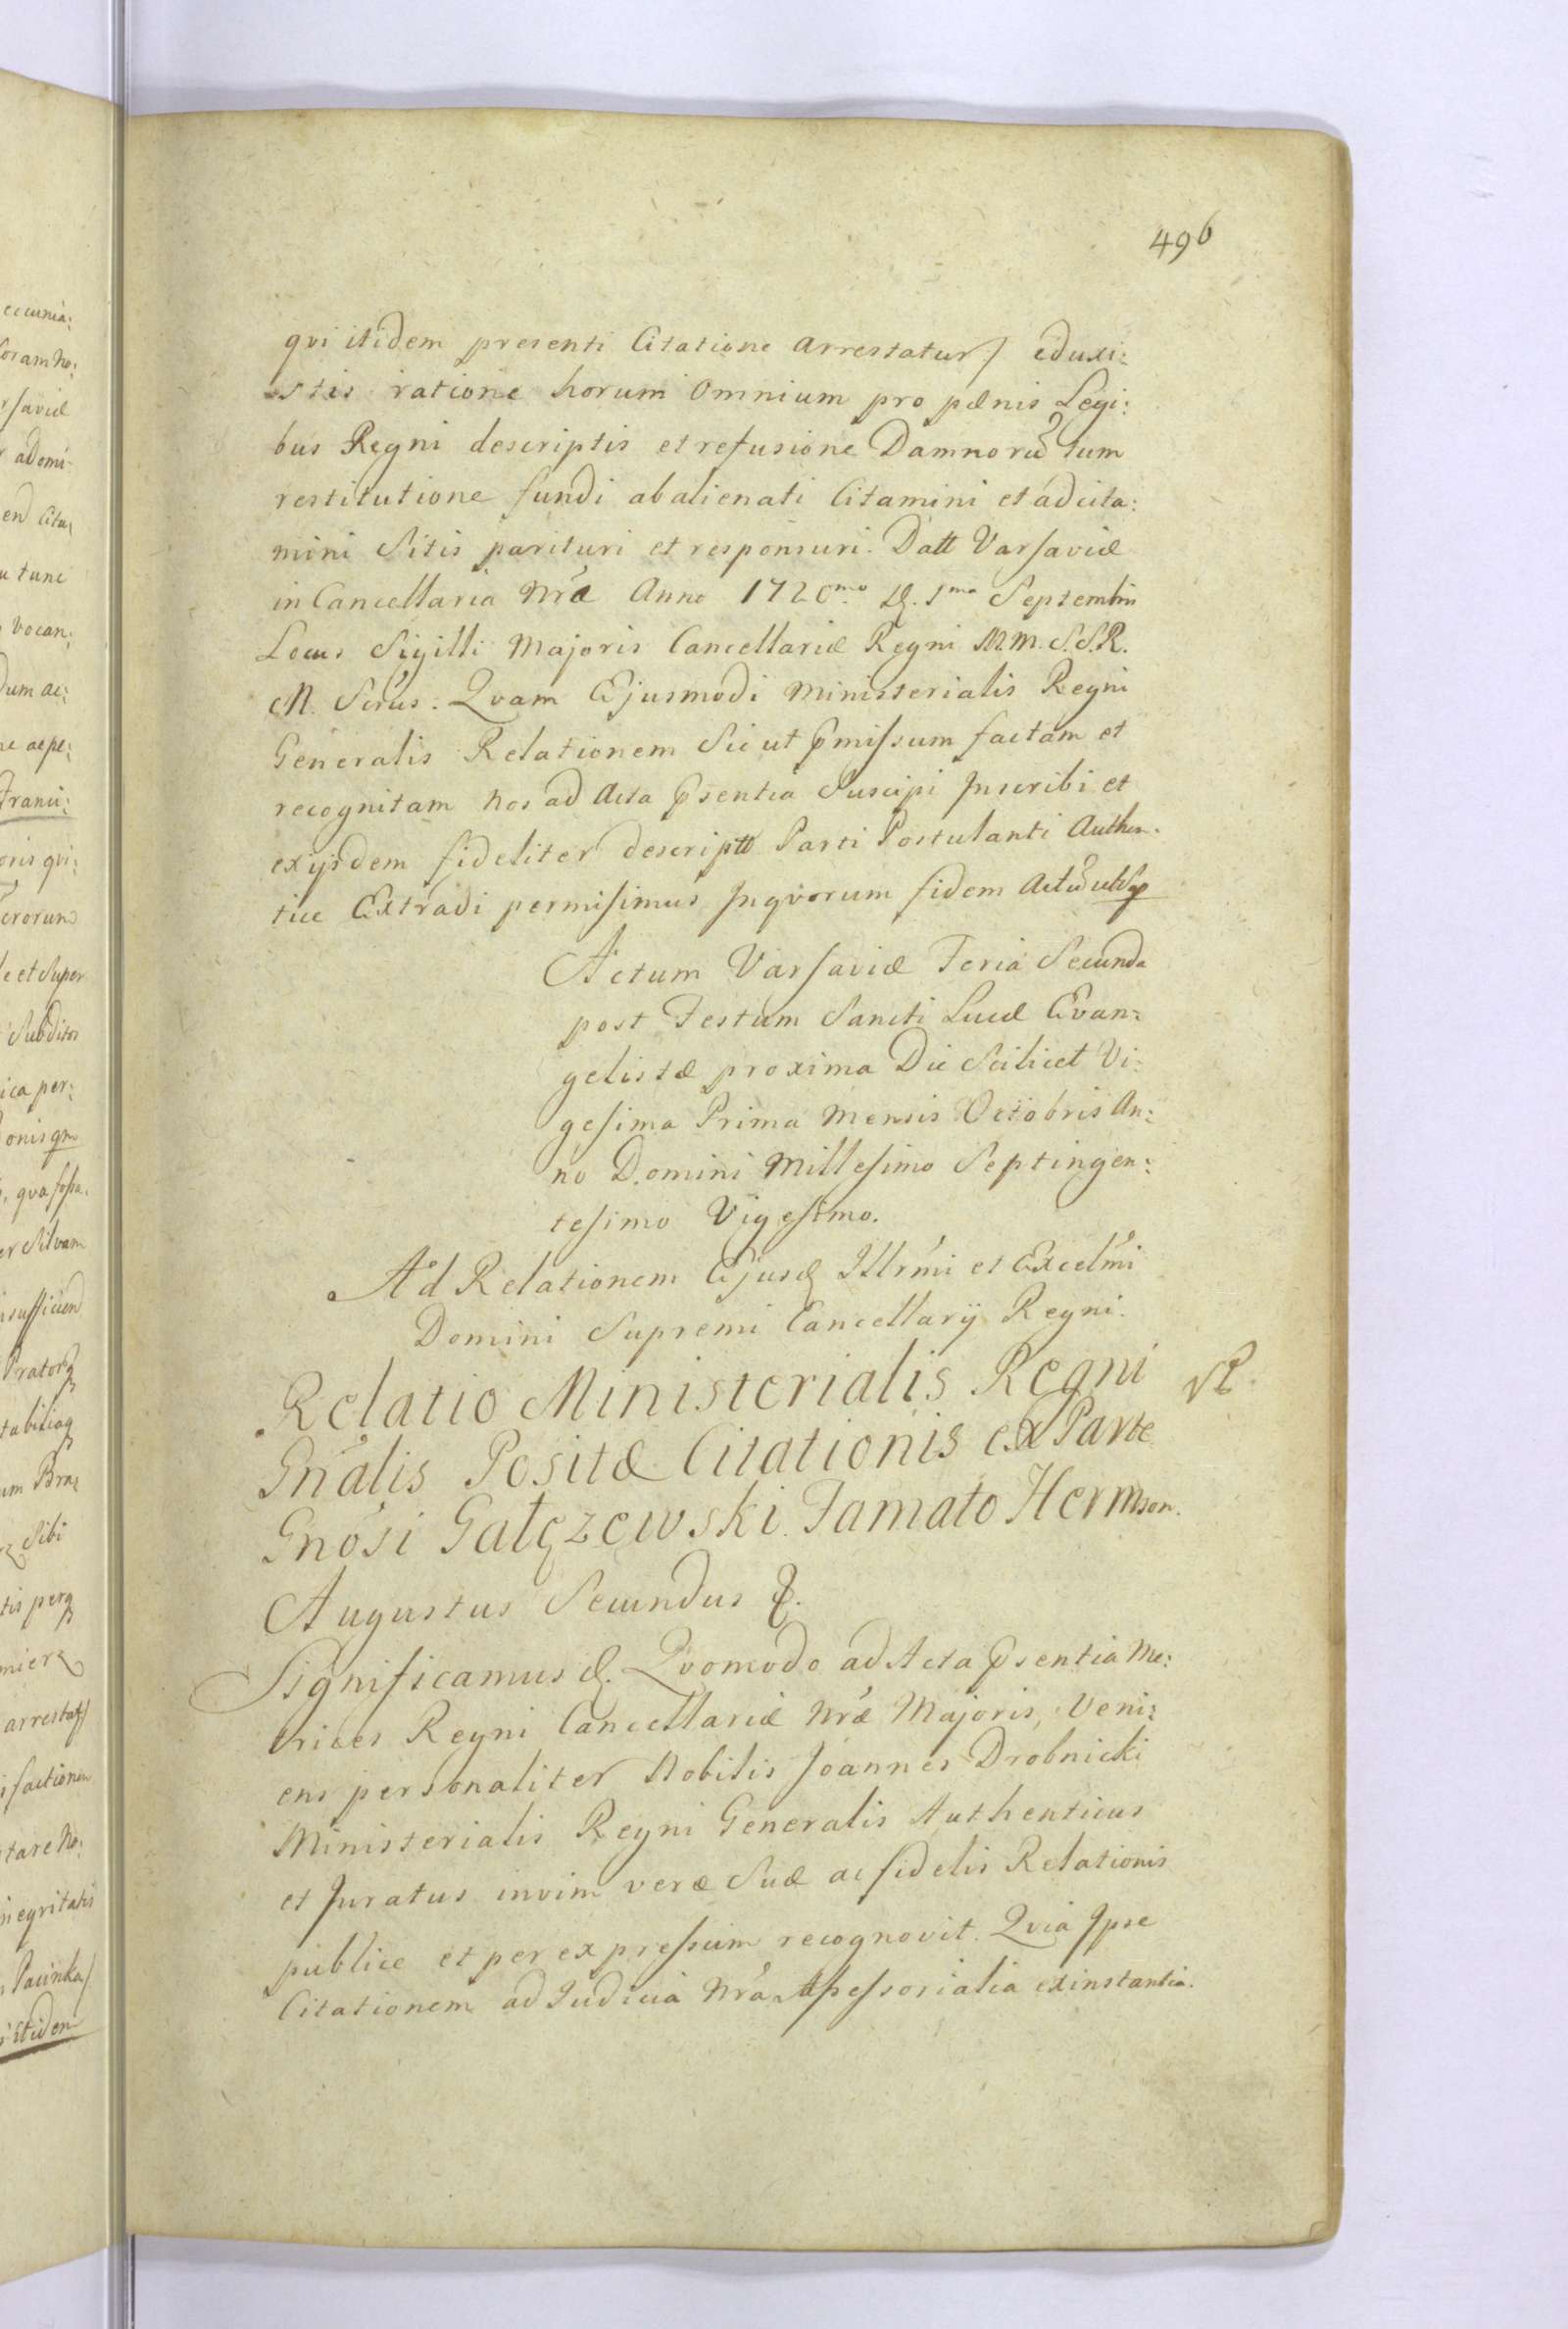 496
qvi itidem presenti Citatione arrestatur/ eduxi:
stis ratione horum Omnium pro pænis Legi:
bus Regni descriptis et refusione Damnorũ tum
restitutione fundi abalienati Citamini et adcita:
mini Sitis parituri et responsuri. Datt Varsaviæ
in Cancellaria Nrá Anno 1720mo. d. 1ma Septembris
Locus Sigilli Majoris Cancellariæ Regni M.m. S.S.R.
M. Scrus. Qvam Ejusmodi Ministerialis Regni
Generalis Relationem Sic ut pmissum factam et
recognitam nos ad Acta psentia Suscipi Inscribi et
exijsdem fideliter descriptt Parti Postulanti Authen:
tice Extradi permisimus Inqvorum fidem Actũ
Actum Varsaviæ Feria Secunda
post Festum Sancti Lucæ Evan:
gelistæ proxima Die Scilicet Vi:
gesima Prima Mensis Octobris An:
no Domini Millesimo Septingen:
tesimo Vigesimo.
Ad Relationem Ejusd Illrmi et Excelmi
Domini Supremi Cancellarij Regni.
Relatio Ministerialis Regni
Gnalis Positæ Citationis ex Parte
Gnosi Gałęzewski Famato Hermson.
Augustus Secundus
Significamus d. Qvomodo ad Acta psentia Me:
trices Regni Cancellariæ Nræ Majoris, Veni:
ens personaliter Nobilis Joannes Drobnicki
Ministerialis Regni Generalis Authenticus
et Juratus invim veræ Suæ ac fidelis Relationis
publice et per expressum recognovit. Qvia Ipse
Citationem ad Judicia Nra Assessorialia exinstantia